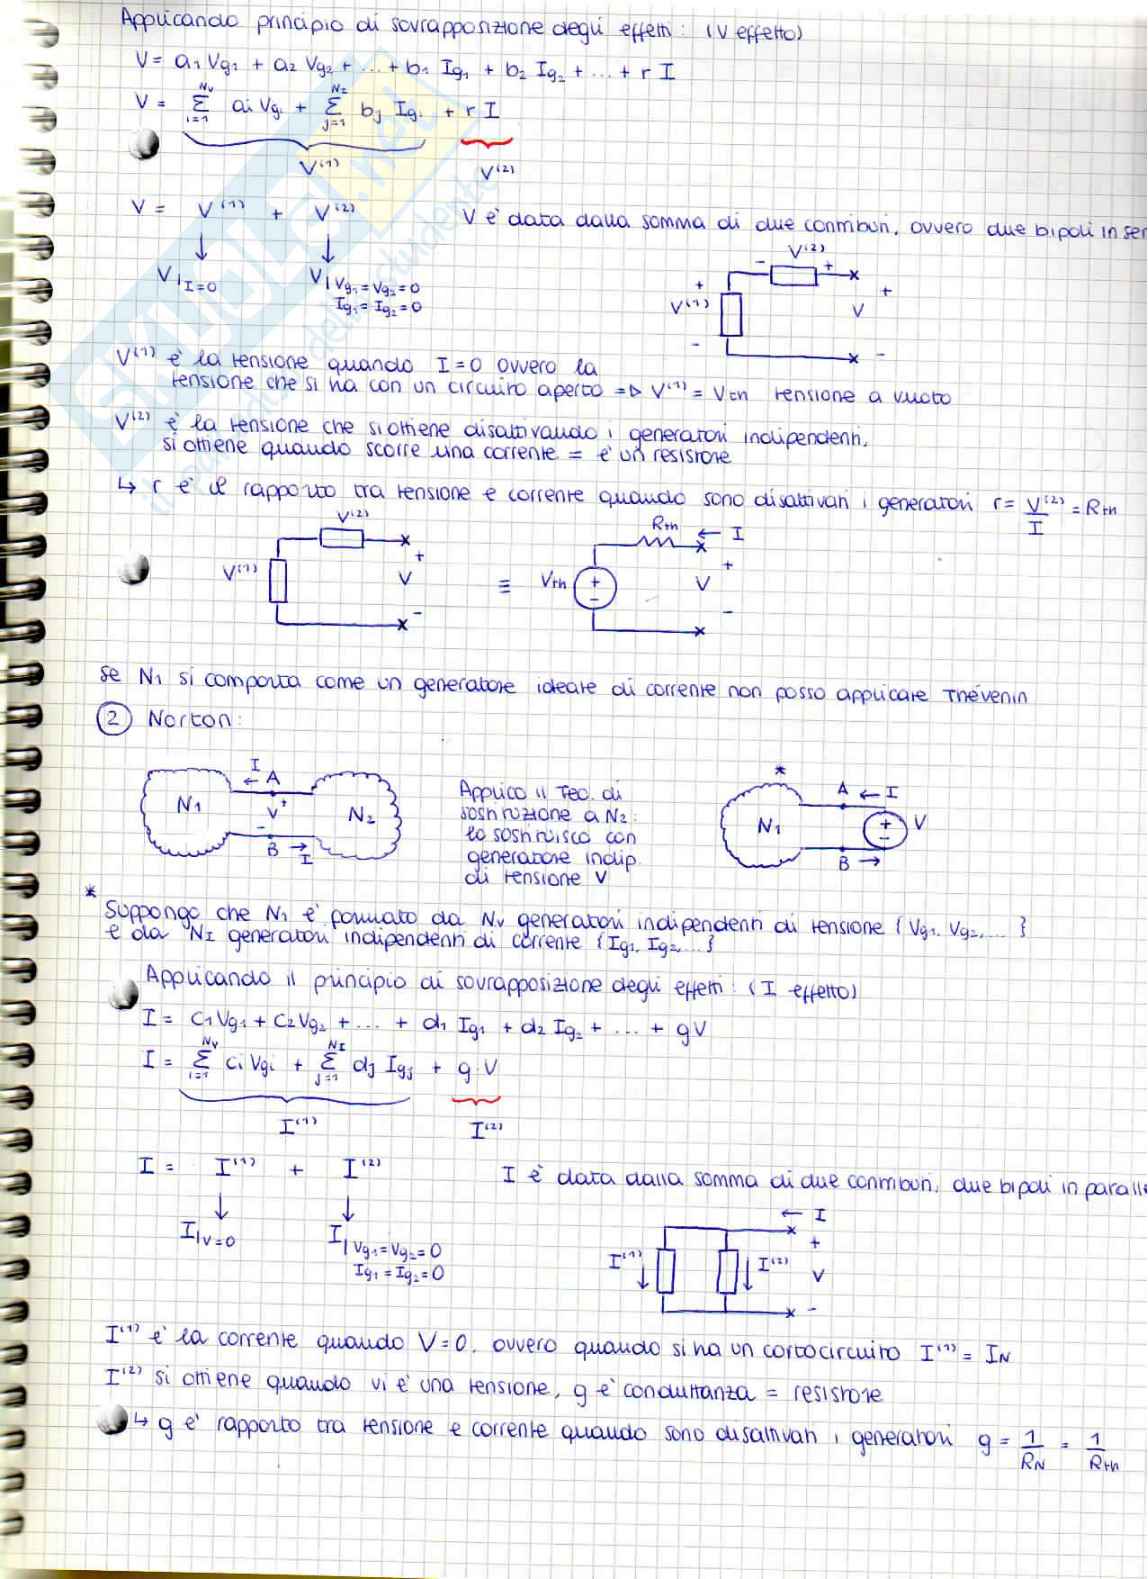 Applicando principio di sovrapposizione degli effetti: (V effetto)
V = a1 Vg1 + a2 Vg2 + ... + b1 Ig1 + b2 Ig2 + ... + r I
V = Σ(i=1, Nv) ai Vgi + Σ(j=1, NI) bj Igi + r I
V(1) V(2)
V = V(1) + V(2) V è data dalla somma di due contributi, ovvero due bipoli in ser
↓ ↓
V|I=0 V|Vg1=Vg2=0
Ig1=Ig2=0
- V(2) +
+ V(1) -
+ V -
V(1) è la tensione quando I=0 ovvero la
tensione che si ha con un circuito aperto => V(1) = Vth tensione a vuoto
V(2) è la tensione che si ottiene disattivando i generatori indipendenti,
si ottiene quando scorre una corrente = è un resistore
↳ r è il rapporto tra tensione e corrente quando sono disattivati i generatori r = V(2)/I = Rth
V(2) Rth ← I
V(1) + V - ≡ Vth + - + V -
se N1 si comporta come un generatore ideale di corrente non posso applicare Thévenin
2 Norton:
I ← A
N1 + V - N2
B → I
Applico il Teo. di
sostituzione a N2:
lo sostituisco con
generatore indip.
di tensione V
*
A ← I
N1 + - V
B →
*
Suppongo che N1 è formato da Nv generatori indipendenti di tensione {Vg1, Vg2, ...}
e da NI generatori indipendenti di corrente {Ig1, Ig2, ...}
Applicando il principio di sovrapposizione degli effetti: (I effetto)
I = c1 Vg1 + c2 Vg2 + ... + d1 Ig1 + d2 Ig2 + ... + gV
I = Σ(i=1, Nv) ci Vgi + Σ(j=1, NI) dj Igj + g·V
I(1) I(2)
I = I(1) + I(2) I è data dalla somma di due contributi, due bipoli in paralle
↓ ↓
I|V=0 I|Vg1=Vg2=0
Ig1=Ig2=0
← I
I(1) ↓ ↓ I(2) + V -
I(1) è la corrente quando V=0, ovvero quando si ha un cortocircuito I(1) = IN
I(2) si ottiene quando vi è una tensione, g è conduttanza = resistore
↳ g è rapporto tra tensione e corrente quando sono disattivati i generatori g = 1/RN = 1/Rth